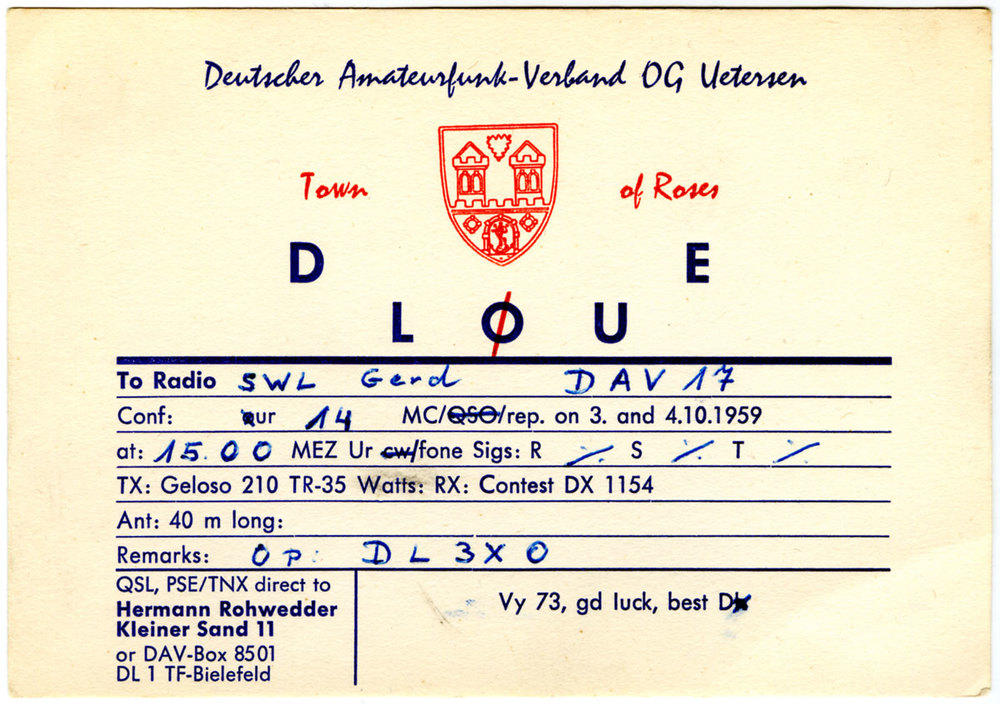 Deutscher Amateurfunk-Verband OG Uetersen
Town of Roses
D E
L Ø U
To Radio SWL Gerd DAV 17
Conf: ur 14 MC/QSO/rep. on 3. and 4.10.1959
at: 15.00 MEZ Ur cw/fone Sigs: R ·/. S ·/. T ·/.
TX: Geloso 210 TR-35 Watts: RX: Contest DX 1154
Ant: 40 m long:
Remarks: Op: DL3XO
QSL, PSE/TNX direct to
Hermann Rohwedder
Kleiner Sand 11
or DAV-Box 8501
DL 1 TF-Bielefeld
Vy 73, gd luck, best